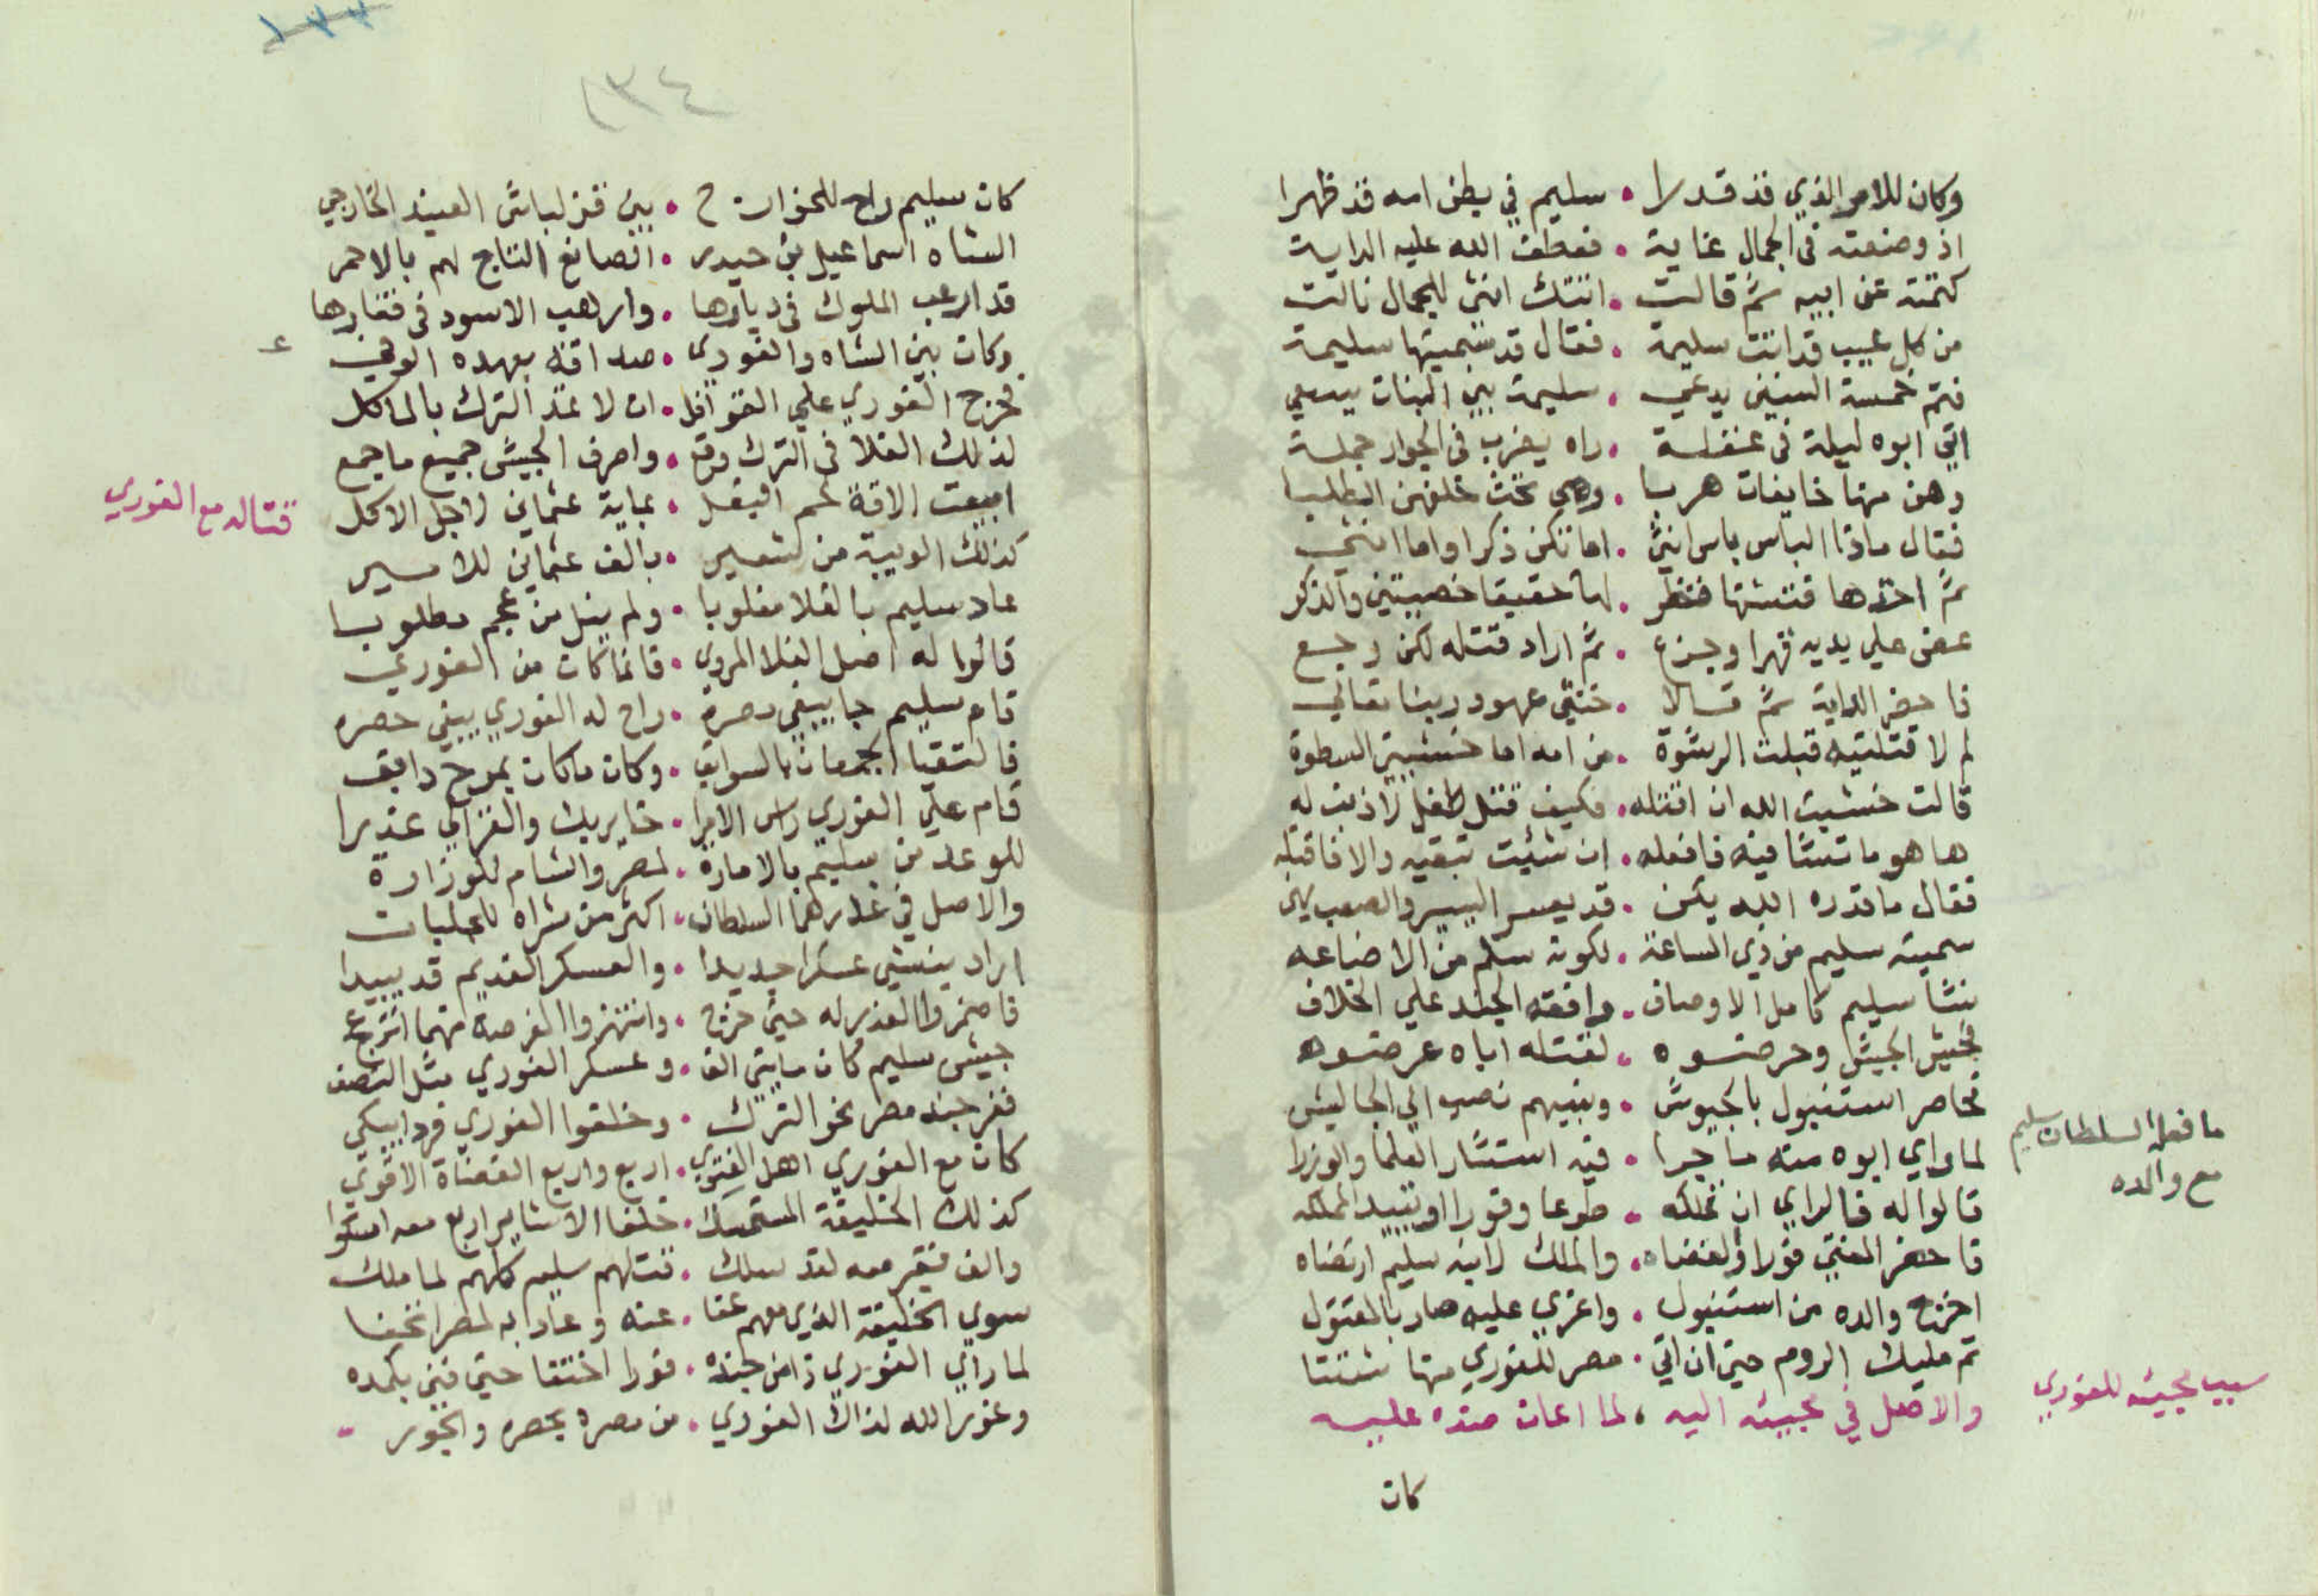 وكان للامر الذي قد قدرا • سليم في بطن امه قد ظهرا
اذ وضعته في الجمال غاية • فعطف الله عليه الداية
كتمته عن ابيه ثم قالت • انتك انثى للجمال نالت
من كل عيب قد انت سليمة • فقال قد سميتها سليمة
فتم خمسة السنين يدعي • سليمة بين البنات يسعي
اتي ابوه ليلة في غفلة • راه يضرب في الجوار جملة
وهن منها خايفات هربا • وهي تحث خلفهن الطلبا
فقال ماذا الباس باس انثى • اما تكن ذكرا واما انثى
ثم اخذها فتشها فنظر • لها حقيقا خصيتين والذكر
عض علي يديه قهرا وجزع • ثم اراد قتله لكن رجع
فاحضر الداية ثم قالا • خنتي عهود ربنا تعالي
لم لا قتلتيه قبلت الرشوة • من امه اما خشيتي السطوة
قالت خشيت الله ان اقتله • فكيف قتل طفل لا ذنب له
ها هو ما تشا فيه فافعله • ان شئت تبقيه والا فاقتله
فقال ما قدره الله يكن • قد يعسر اليسير والصعب يهن
سميته سليم من ذي الساعة • لكونه سلم من الاضاعه
نشا سليم كامل الاوصاف • وافقه الجند علي الخلاف
فجيش الجيش وحرضوه • لقتله اباه عرضوه
فحاصر استنبول بالجيوش • وبينهم نصب الي الجاليش
ما فعله السلطان سليم
مع والده
لما راي ابوه منه ما جرا • فيه استشار العلما والوزرا
قالوا له فالراي ان تملكه • طوعا وفورا او يبيد المملكه
فاحضر المفتي فورا والقضاه • والملك لابنه سليم ارتضاه
اخرج والده من استنبول • واغري عليه صار بالمقتول
تم مليك الروم حتى ان اتي • مصر للغوري منها شتتا
سبب مجيئه للغوري
والاصل في مجيئه اليه • لما اعان ضده عليه
كان
١٣٤
كان سليم راح للخوارج • بين قزلباش العبيد الخارجي
الشاه اسماعيل بن حيدر • الصانع التاج لهم بالاحمر
قد ارعب الملوك في ديارها • وارهب الاسود في قفارها
وكان بين الشاه والغوري • صداقة بعهده الوفي
فحرج الغوري علي القوافل • ان لا تمد الترك بالماكل
لذلك الغلا في الترك وقع • واصرف الجيش جميع ما جمع
قتاله مع الغوري
ابيعت الاقة لحم البغل • بماية عثماني لاجل الاكل
كذلك الويبة من شعير • بالف عثماني للامير
عاد سليم بالغلا مغلوبا • ولم ينل من عجم مطلوبا
قالوا له اصل الغلا المروي • فانما كان من الغوري
قام سليم جا يبغي مصره • راح له الغوري يبغي حصره
فالتقيا الجمعان بالسوابق • وكان ما كان بمرج دابق
قام علي الغوري راس الامرا • خاير بك والغزالي غدرا
للوعد من سليم بالامارة • لمصر والشام للوزارة
والاصل في غدرهما السلطان • اكثر من شراه للجلبان
اراد ينشي عسكرا جديدا • والعسكر القديم قد يبيدا
فاضمروا الغدر له حتى خرج • وانتهزوا الفرصة مهما انزعج
جيش سليم كان مايتي الف • وعسكر الغوري مثل النصف
ففر جند مصر نحو الترك • وخلفوا الغوري فردا يبكي
كان مع الغوري اهل الفتوي • اربع واربع القضاة الاقوي
كذلك الخليفة المستمسك • خلفا الاشاير اربع معه
والف فقير معه لقد سلك • قتلهم سليم كلهم لما ملك
سوي الخليفة الذي معهم عفا • عنه وعاد به لمصر
لما راي الغوري ذا من جنده • فورا اختفا حتى فني بكمده
وغور الله لذاك الغوري • من مصره بحصره والجور